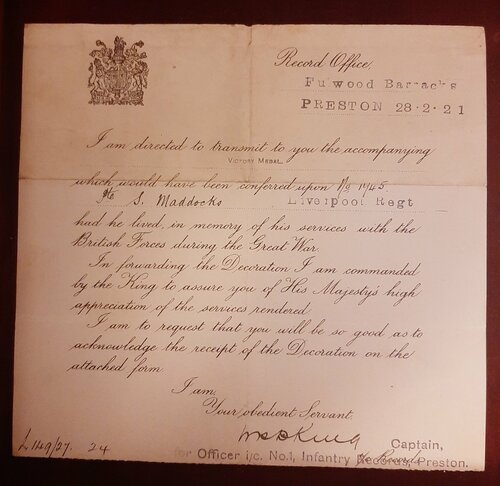 Record Office,
Fulwood Barracks
PRESTON 28·2·21
I am directed to transmit to you the accompanying
VICTORY MEDAL
which would have been conferred upon No 11745
Pte S. Maddocks Liverpool Regt
had he lived, in memory of his services with the
British Forces during the Great War.
In forwarding the Decoration I am commanded
by the King to assure you of His Majesty's high
appreciation of the services rendered.
I am to request that you will be so good as to
acknowledge the receipt of the Decoration on the
attached form.
I am,
Your obedient Servant,
King Captain,
for Officer i/c. No.1, Infantry Records, Preston.
24